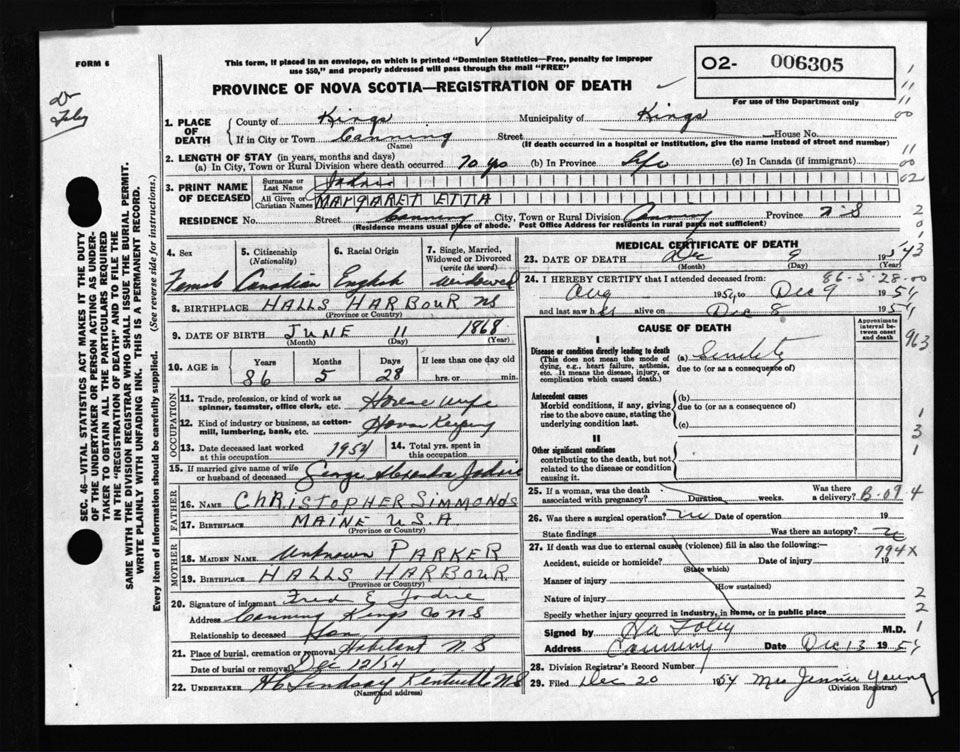 FORM 6
This form, if placed in an envelope, on which is printed "Dominion Statistics—Free, penalty for improper
use $50," and properly addressed will pass through the mail "FREE"
O2- 006305
PROVINCE OF NOVA SCOTIA—REGISTRATION OF DEATH
For use of the Department only
Dr Foley
SEC. 46—VITAL STATISTICS ACT MAKES IT THE DUTY
OF THE UNDERTAKER OR PERSON ACTING AS UNDER-
TAKER TO OBTAIN ALL THE PARTICULARS REQUIRED
IN THE "REGISTRATION OF DEATH" AND TO FILE THE
SAME WITH THE DIVISION REGISTRAR WHO SHALL ISSUE THE BURIAL PERMIT.
WRITE PLAINLY WITH UNFADING INK. THIS IS A PERMANENT RECORD.
Every item of information should be carefully supplied. (See reverse side for instructions.)
1. PLACE OF DEATH County of Kings Municipality of Kings
If in City or Town Canning Street House No.
(Name) (If death occurred in a hospital or institution, give the name instead of street and number)
2. LENGTH OF STAY (in years, months and days)
(a) In City, Town or Rural Division where death occurred 70 yrs (b) In Province Life (c) In Canada (if immigrant)
3. PRINT NAME OF DECEASED Surname or Last Name Jodrie
All Given or Christian Names MARGARET ETTA
RESIDENCE No. Street Canning City, Town or Rural Division Canning Province N S
(Residence means usual place of abode. Post Office Address for residents in rural parts not sufficient)
4. Sex 5. Citizenship (Nationality) 6. Racial Origin 7. Single, Married, Widowed or Divorced (write the word)
Female Canadian English Widowed
8. BIRTHPLACE HALLS HARBOUR NS
(Province or Country)
9. DATE OF BIRTH JUNE 11 1868
(Month) (Day) (Year)
10. AGE in Years Months Days If less than one day old
86 5 28 hrs. or min.
OCCUPATION
11. Trade, profession, or kind of work as spinner, teamster, office clerk, etc. House Wife
12. Kind of industry or business, as cotton-mill, lumbering, bank, etc. House Keeping
13. Date deceased last worked at this occupation 1954 14. Total yrs. spent in this occupation
15. If married give name of wife or husband of deceased George Alexander Jodrie
FATHER
16. NAME CHRISTOPHER SIMMONDS
17. BIRTHPLACE MAINE U.S.A
(Province or Country)
MOTHER
18. MAIDEN NAME Unknown PARKER
19. BIRTHPLACE HALLS HARBOUR.
(Province or Country)
20. Signature of informant Fred E Jodrie
Address Canning Kings Co N S
Relationship to deceased Son
21. Place of burial, cremation or removal Habitant N S
Date of burial or removal Dec 12/54
22. UNDERTAKER H C Lindsay Kentville N S
(Name and address)
MEDICAL CERTIFICATE OF DEATH
23. DATE OF DEATH Dec 9 1954
(Month) (Day) (Year)
86-5-28-00
24. I HEREBY CERTIFY that I attended deceased from:
Aug 1954 to Dec 9 1954
and last saw her alive on Dec 8 1954
CAUSE OF DEATH
Approximate interval between onset and death
I
Disease or condition directly leading to death
(This does not mean the mode of dying, e.g., heart failure, asthenia, etc. It means the disease, injury, or complication which caused death.)
(a) Senility
due to (or as a consequence of)
Antecedent causes
Morbid conditions, if any, giving rise to the above cause, stating the underlying condition last.
(b)
due to (or as a consequence of)
(c)
II
Other significant conditions
contributing to the death, but not related to the disease or condition causing it.
25. If a woman, was the death associated with pregnancy? Duration weeks. Was there a delivery? B-09.4
26. Was there a surgical operation? no Date of operation 19
State findings Was there an autopsy? no
27. If death was due to external causes (violence) fill in also the following:—
794X
Accident, suicide or homicide? Date of injury 19
(State which)
Manner of injury
(How sustained)
Nature of injury
Specify whether injury occurred in industry, in home, or in public place
Signed by Foley M.D.
Address Canning Date Dec 13 1954
28. Division Registrar's Record Number
29. Filed Dec 20 1954 Mrs Jennie Young
(Division Registrar)
1
11
11
00
11
00
02
2
0
1
43
963
1
3
1
2
2
1